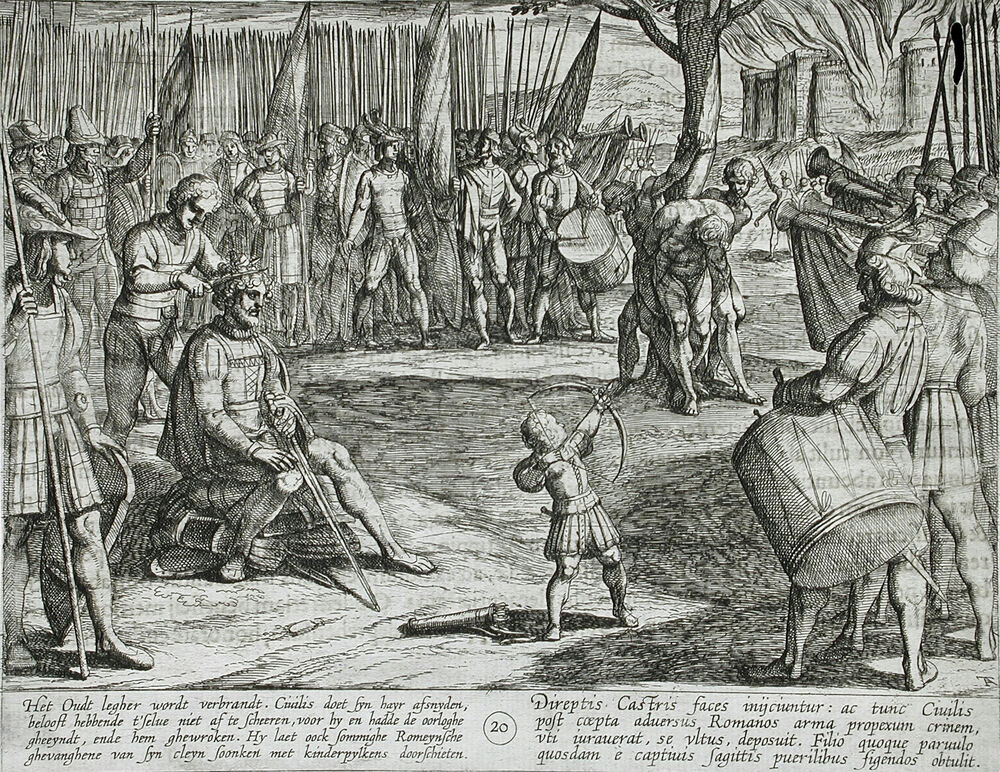 Het Oudt legher wordt verbrandt. Ciuilis doet syn hayr afsnyden,
belooft hebbende t'selue niet af te scheeren, voor hy en hadde de oorloghe
gheeyndt, ende hem ghewroken. Hy laet oock sommighe Romeynsche
ghevanghene van syn cleyn soonken met kinderpylkens doorschieten.
20
Direptis Castris faces inijciuntur: ac tunc Ciuilis
post cœpta aduersus Romanos arma propexum crinem,
vti iurauerat, se vltus, deposuit. Filio quoque paruulo
quosdam e captiuis sagittis puerilibus figendos obtulit.